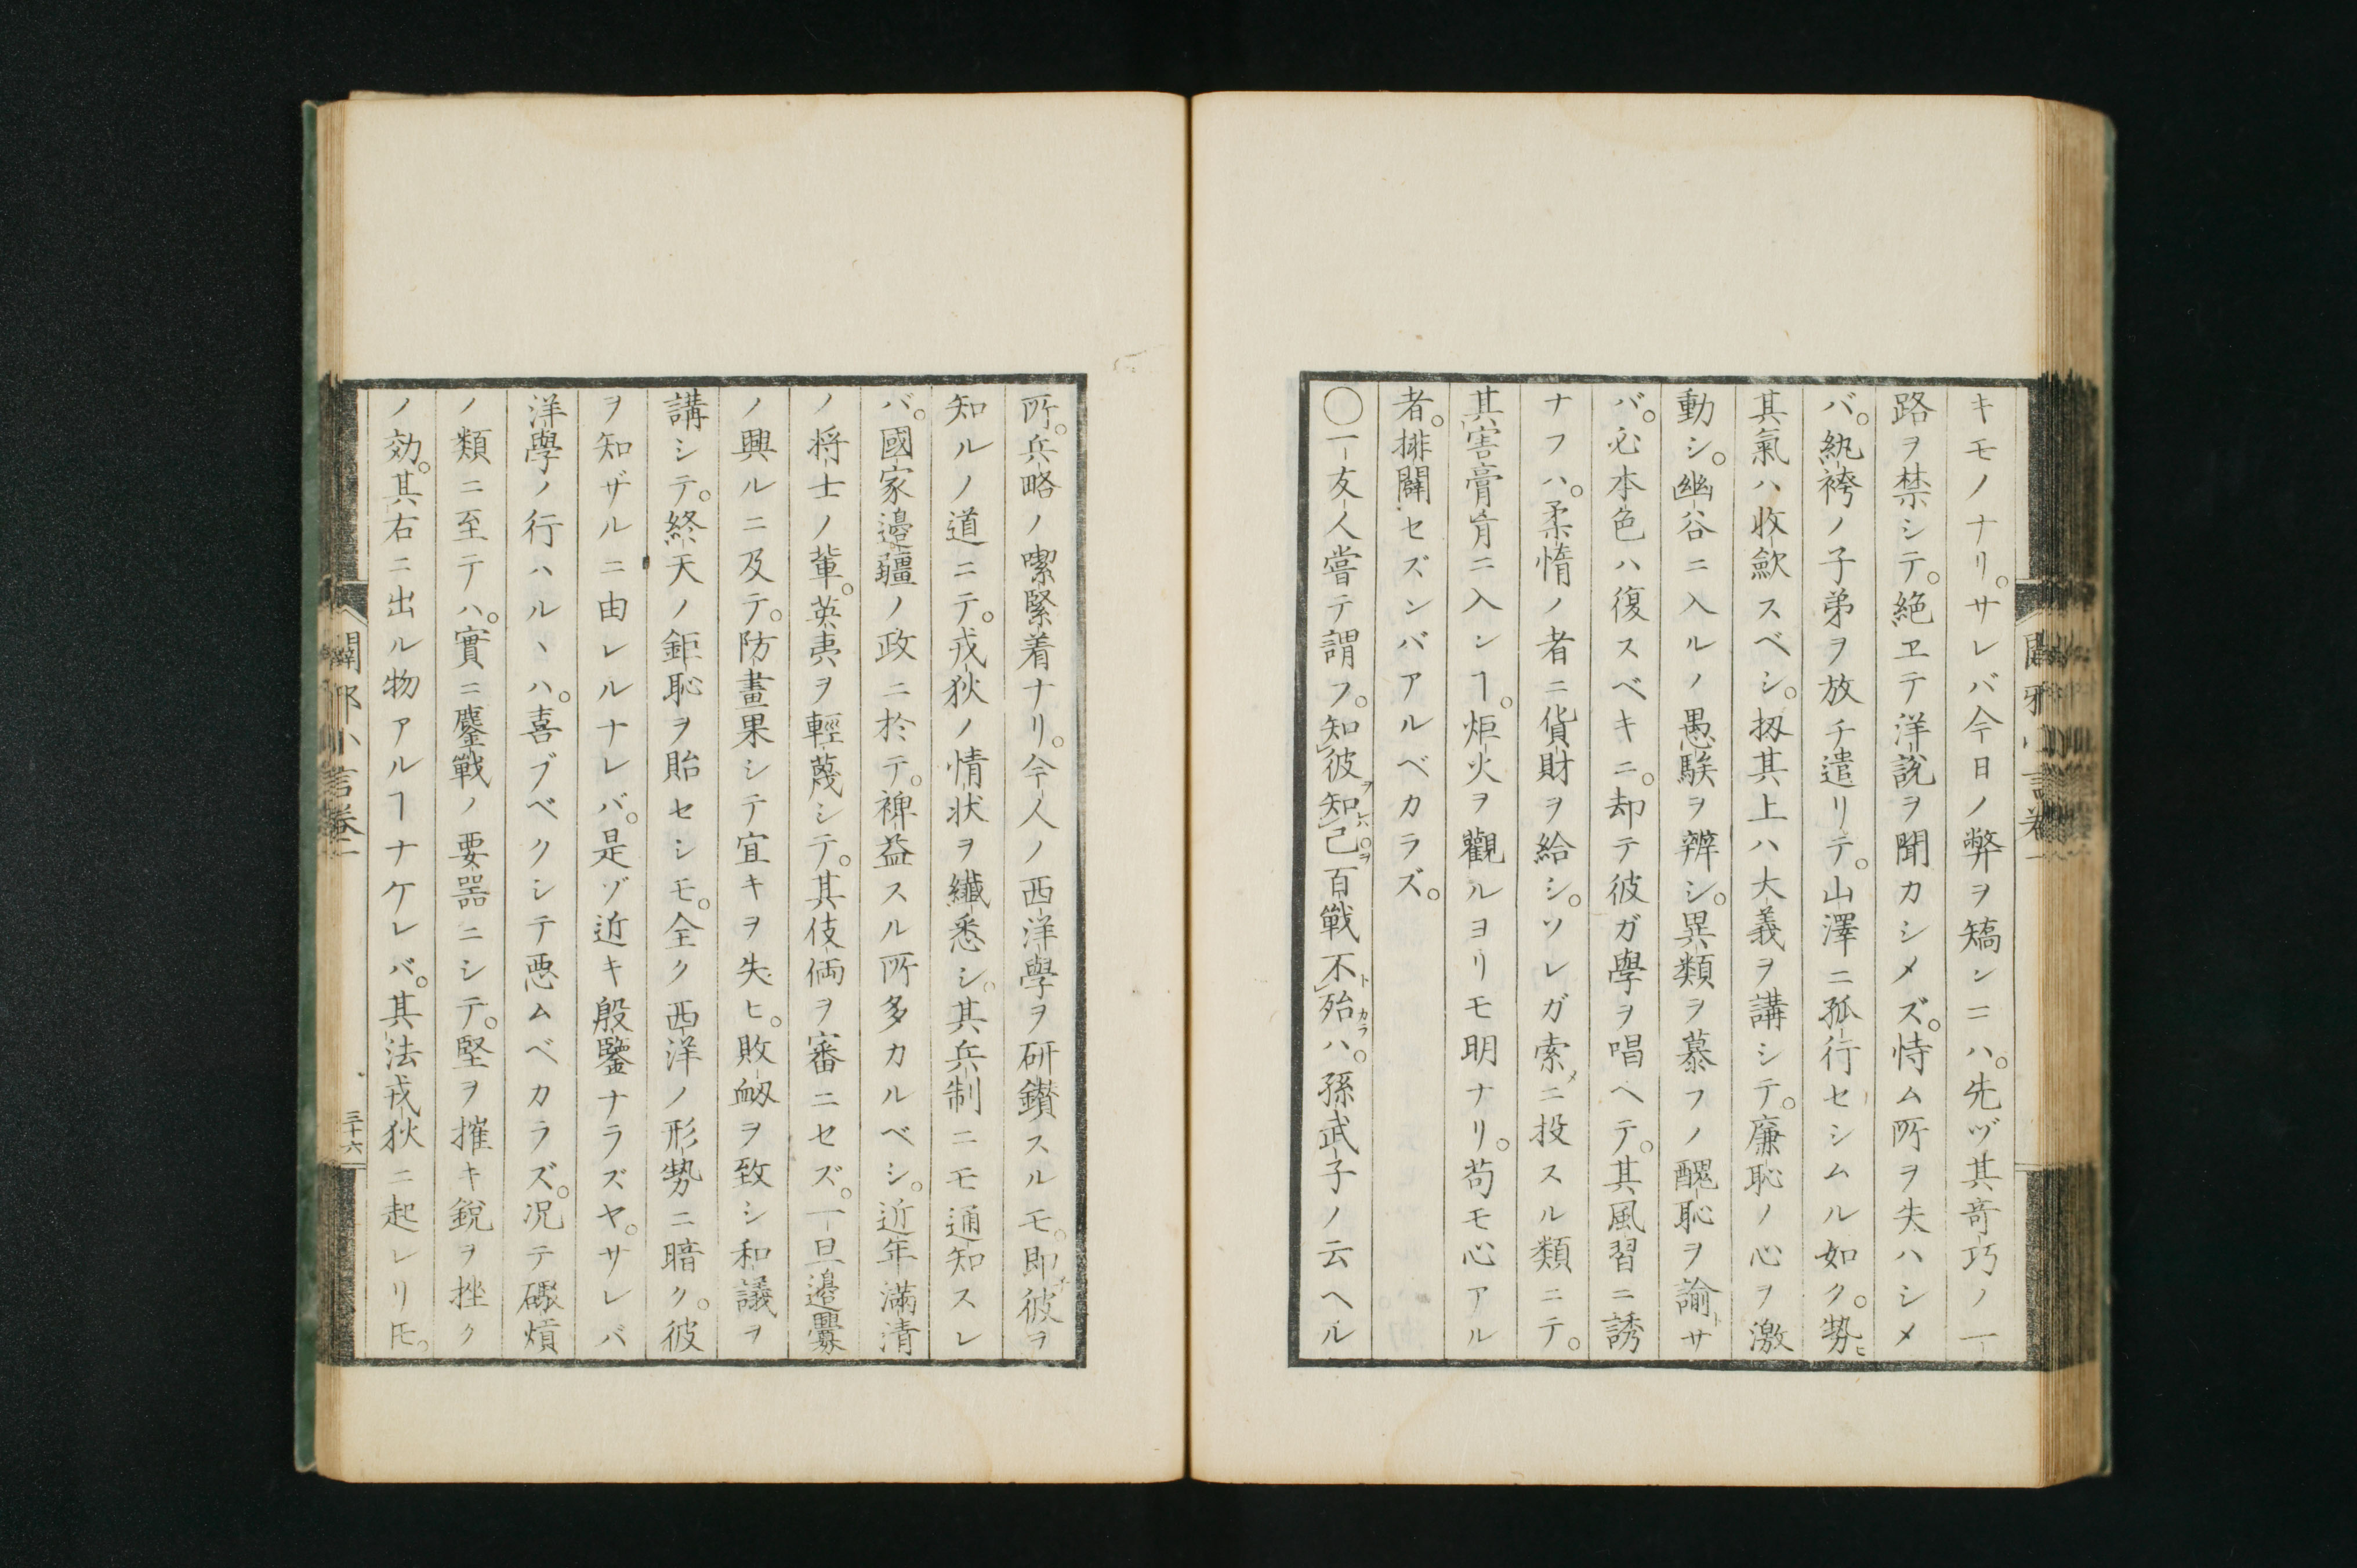 キモノナリ。サレバ今日ノ弊ヲ矯ンニハ。先ヅ其奇巧ノ一
路ヲ禁シテ。絶ヱテ洋説ヲ聞カシメズ。恃ム所ヲ失ハシメ
バ。紈袴ノ子弟ヲ放チ遣リテ。山澤ニ孤行セシムル如ク。勢ヒ
其氣ハ收歛スベシ。扨其上ハ大義ヲ講シテ。廉恥ノ心ヲ激
動シ。幽谷ニ入ルノ愚騃ヲ辨シ。異類ヲ慕フノ醜恥ヲ諭サ
バ。必本色ハ復スベキニ。却テ彼ガ學ヲ唱ヘテ。其風習ニ誘
ナフハ。柔惰ノ者ニ貨財ヲ給シ。ソレガ索メニ投スル類ニテ。
其害膏肓ニ入ンヿ。炬火ヲ觀ルヨリモ明ナリ。苟モ心アル
者。排闢セズンバアルベカラズ。
〇一友人嘗テ謂フ。知彼ヲ知己ヲ百戰不ト殆カラハ。孫武子ノ云ヘル
闢邪小言卷二
所。兵略ノ喫緊着ナリ。今人ノ西洋學ヲ研鑚スルモ。即彼ヲ
知ルノ道ニテ。戎狄ノ情状ヲ纖悉シ。其兵制ニモ通知スレ
バ。國家邊疆ノ政ニ於テ。裨益スル所多カルベシ。近年滿清
ノ将士ノ輩。英夷ヲ輕蔑シテ。其伎倆ヲ審ニセズ。一旦邊釁
ノ興ルニ及テ。防畫果シテ宜キヲ失ヒ。敗衂ヲ致シ和議ヲ
講シテ。終天ノ鉅恥ヲ貽セシモ。全ク西洋ノ形勢ニ暗ク。彼
ヲ知ザルニ由レルナレバ。是ゾ近キ殷鑒ナラズヤ。サレバ
洋學ノ行ハルヽハ。喜ブベクシテ悪ムベカラズ。况テ礟熕
ノ類ニ至テハ。實ニ鏖戰ノ要噐ニシテ。堅ヲ摧キ鋭ヲ挫ク
ノ効。其右ニ出ル物アルヿナケレバ。其法戎狄ニ起レリ𪜈。
闢邪小言卷二
三十六